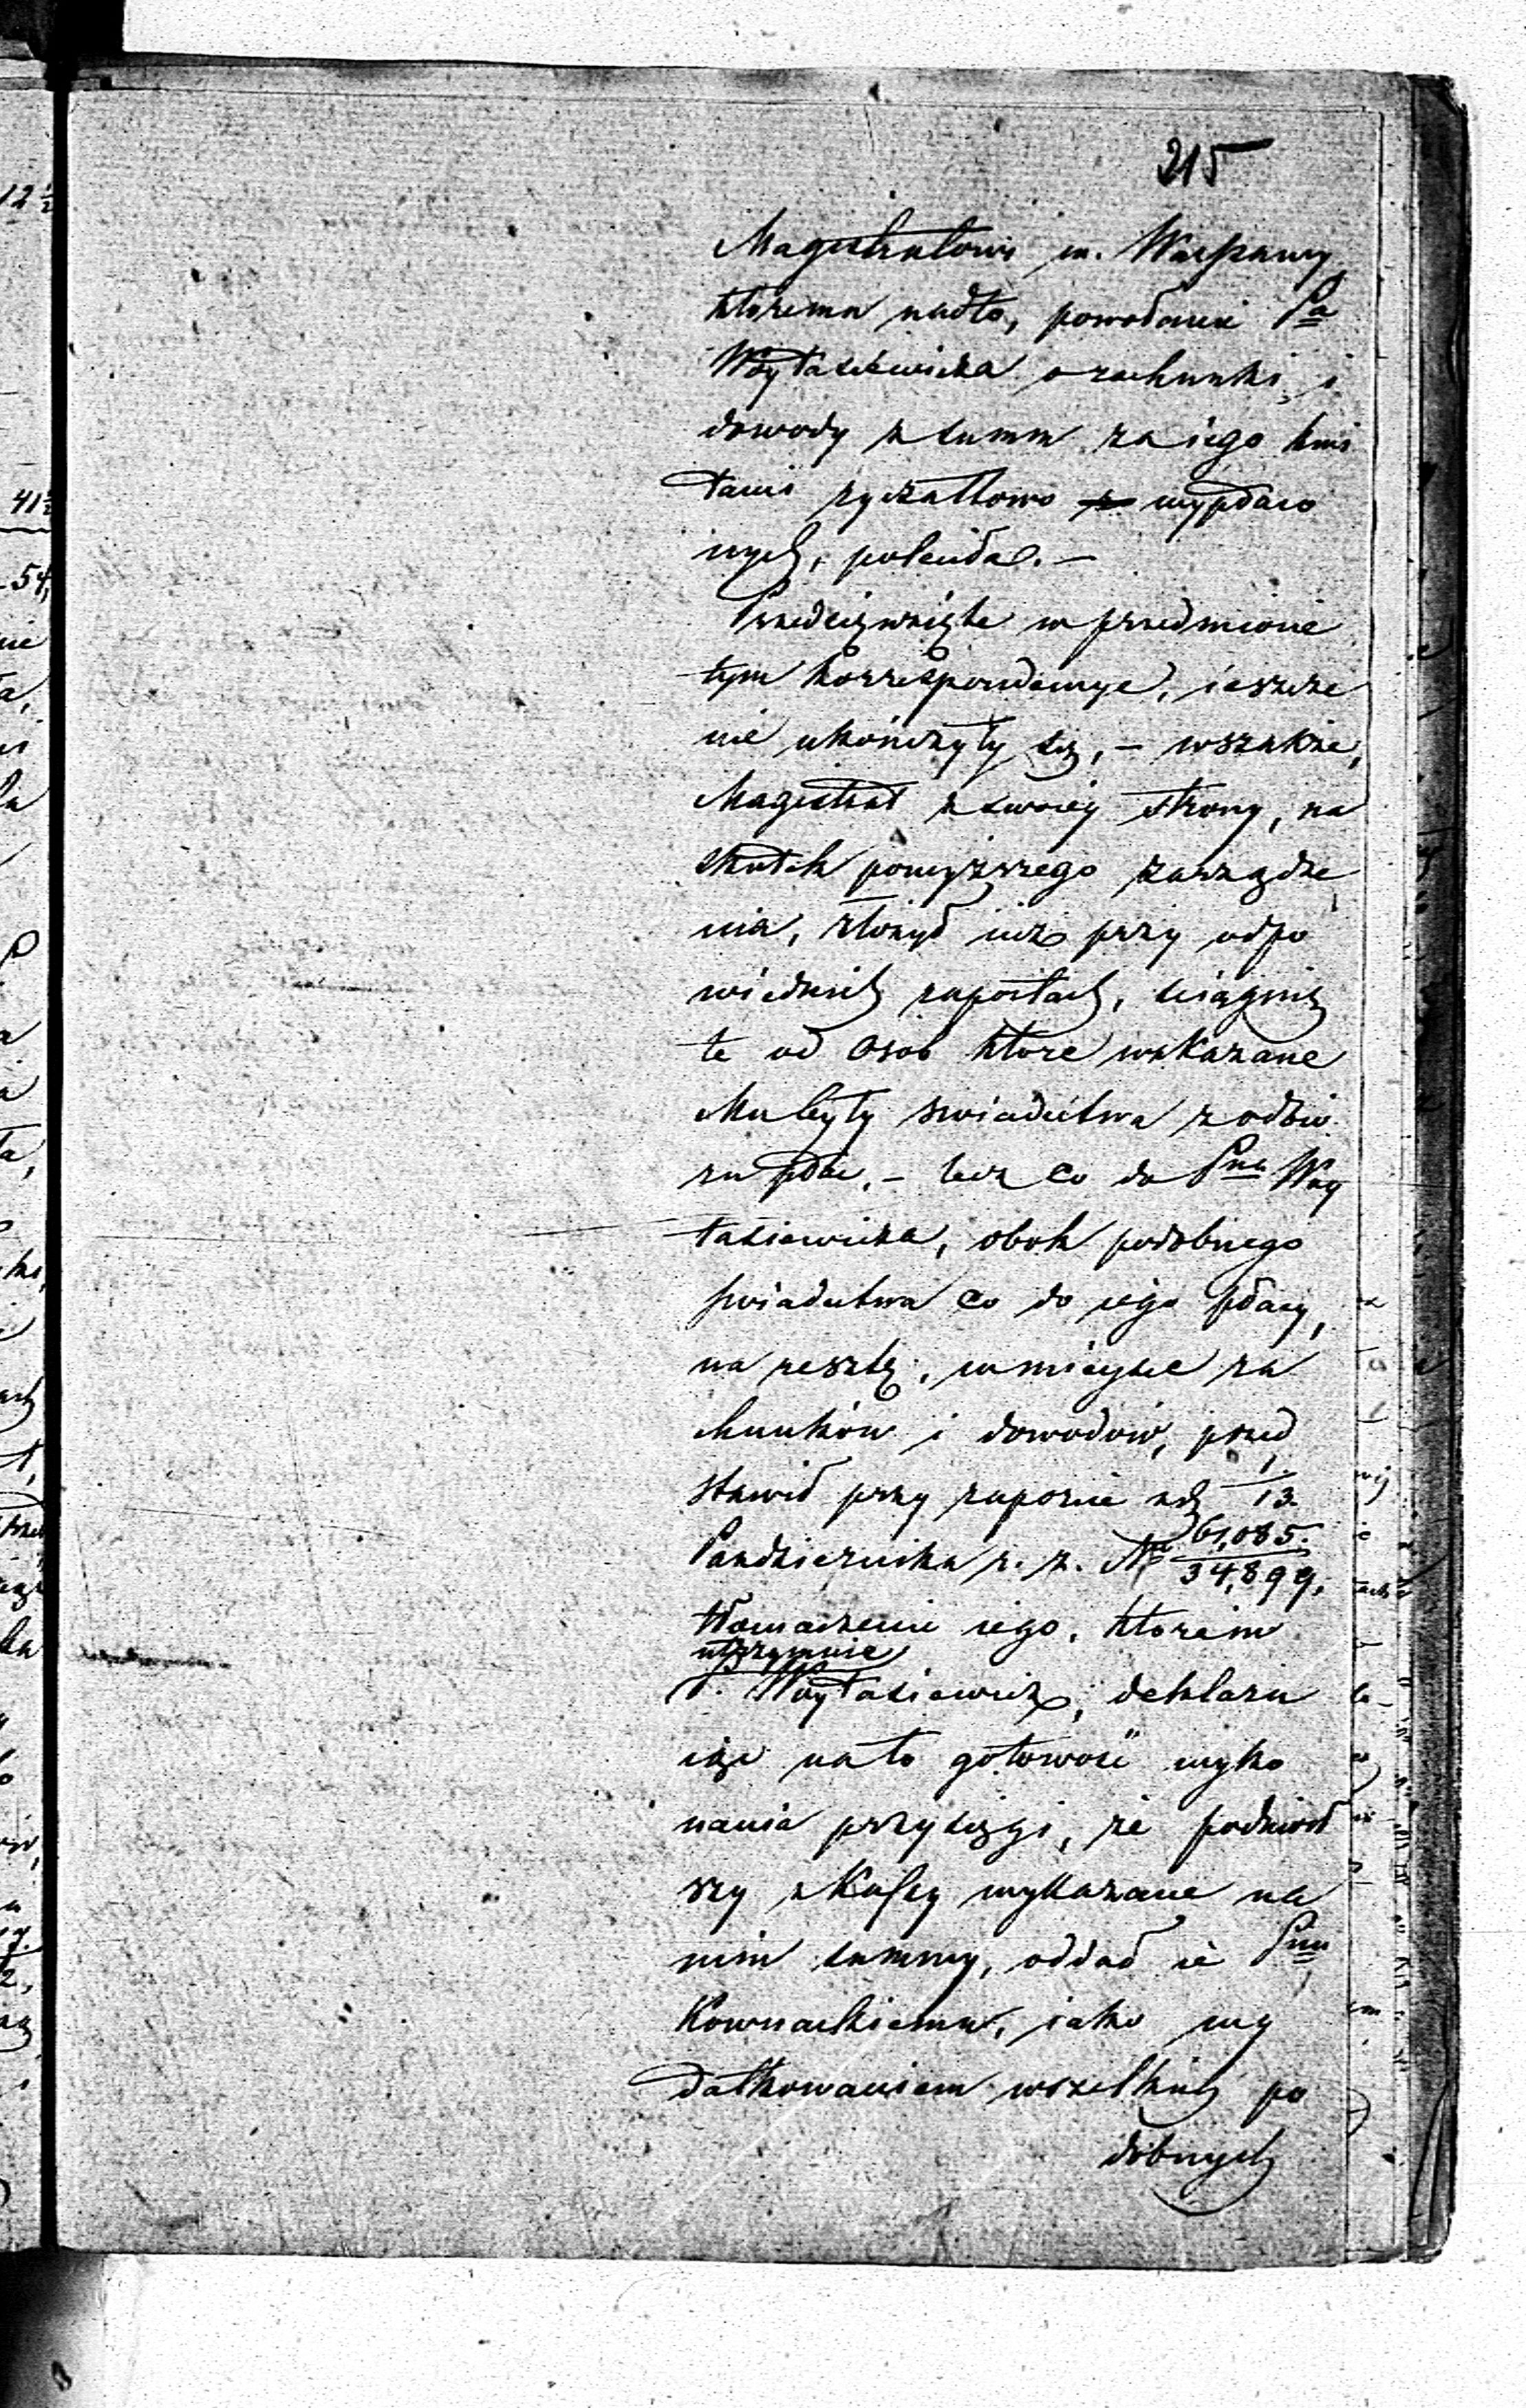 215
Magistratowi m. Warszawy
któremu nadto, powołanie Pa
Woytasiewicza o rachunki i
dowody z summ za iego kwi
tami ryczałtowo wypłaco
nych, polecił.—
Przedsięwzięte w przedmiocie
tym korrespondencye, ieszcze
nie ukończyły się, — wszakże,
Magistrat z swoiéy strony, na
skutek powyższego zarządze
nia, złożył iuż przy odpo
wiednich raportach, ściągnię
te od osob które wskazane
były swiadectwa z odbio
ru płac, — lecz co do Pna Woy
tasiewicza, obok podobnego
swiadectwa co do iego płacy,
na resztę, w mieysce ra
chunków i dowodów, przed
stawił przy raporcie z d. 1/13.
Pazdziernika r. z. No 61,085./34,899,
tłomaczenie iego, którém
utrzymuie
P. Woytasiewicz, deklaru
iąc na to gotowość wyko
nania przysięgi, że podniosł
szy z Kassy wykazane na
nim summy, oddał ie Pnu
Kownackiemu, iako wy
datkowaniem wszelkich po
dobnych